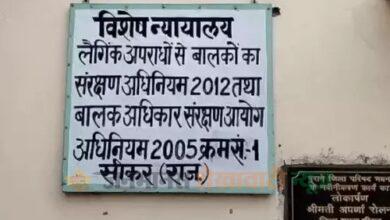 विशेष न्यायालय
लैगिंक अपराधों से बालकों का
संरक्षण अधिनियम 2012 तथा
बालक अधिकार संरक्षण आयोग
अधिनियम 2005 क्रम सं.-1
सीकर (राज.)
पुराने जिला परिषद भवन
के नवीनीकरण कार्य का
लोकार्पण
श्रीमती अपर्णा